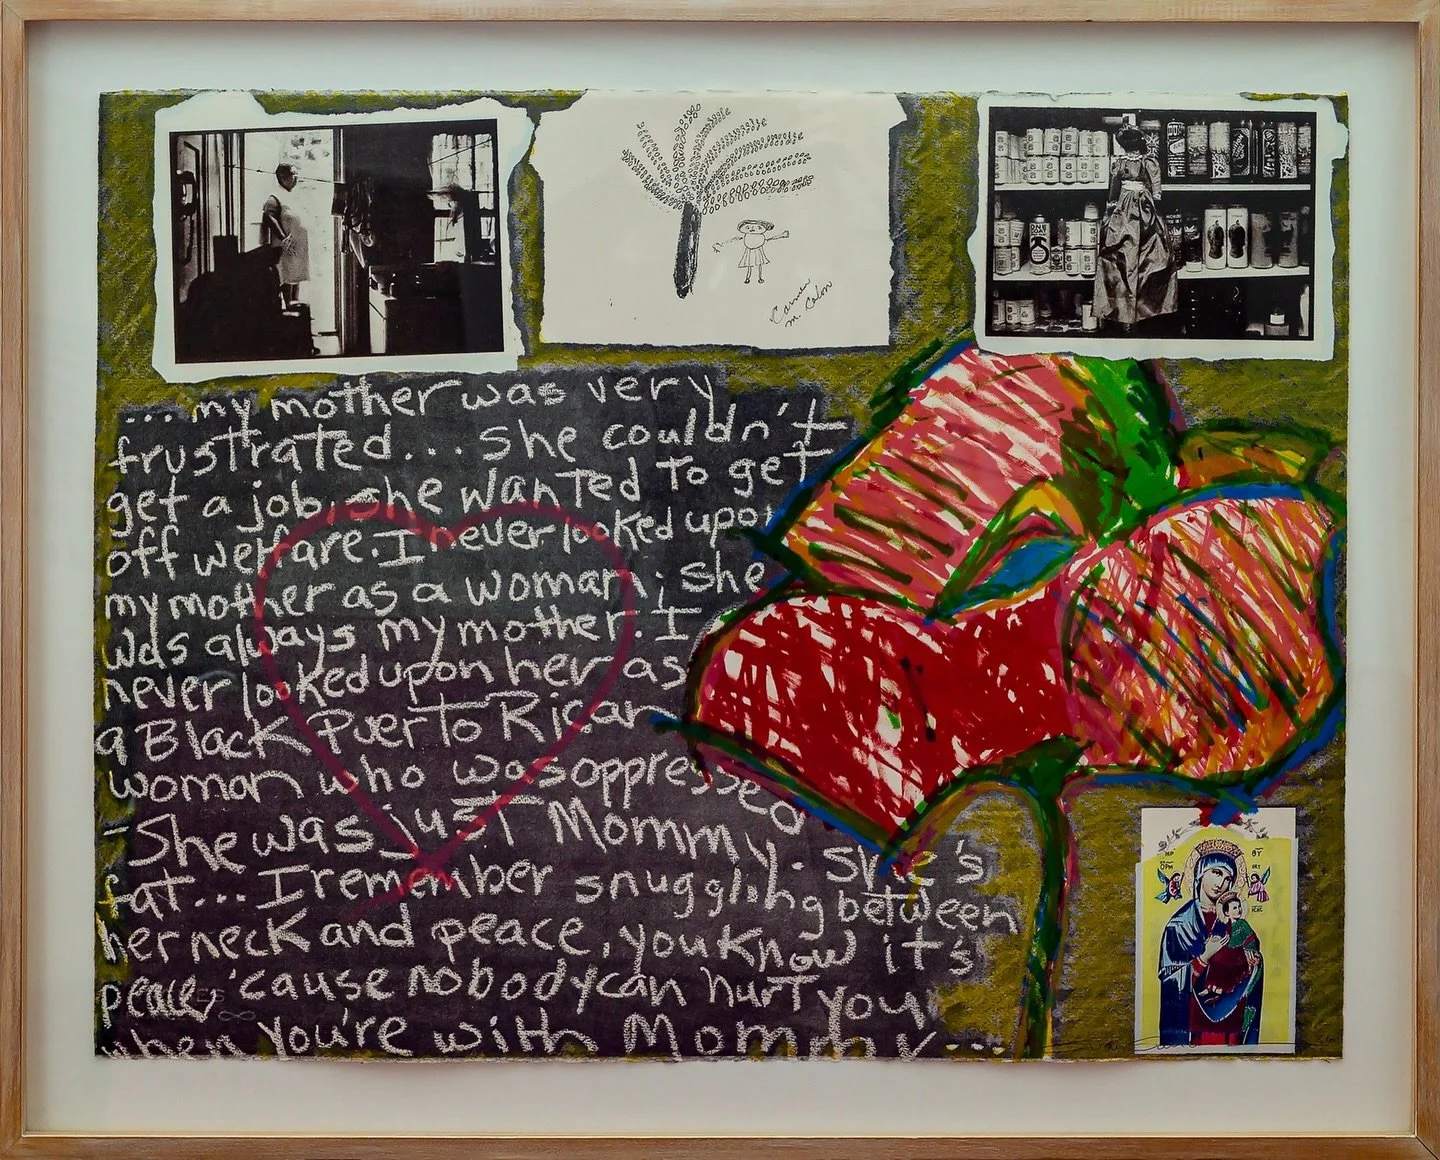 Carmen
M. Colon
...my mother was very
frustrated... she couldn't
get a job, she wanted to get
off welfare. I never looked upon
my mother as a woman; she
was always my mother. I
never looked upon her as
a Black Puerto Rican
woman who was oppressed
- She was just Mommy. She's
fat... I remember snuggling between
her neck and peace, you know it's
peace, 'cause nobody can hurt you
when you're with Mommy...